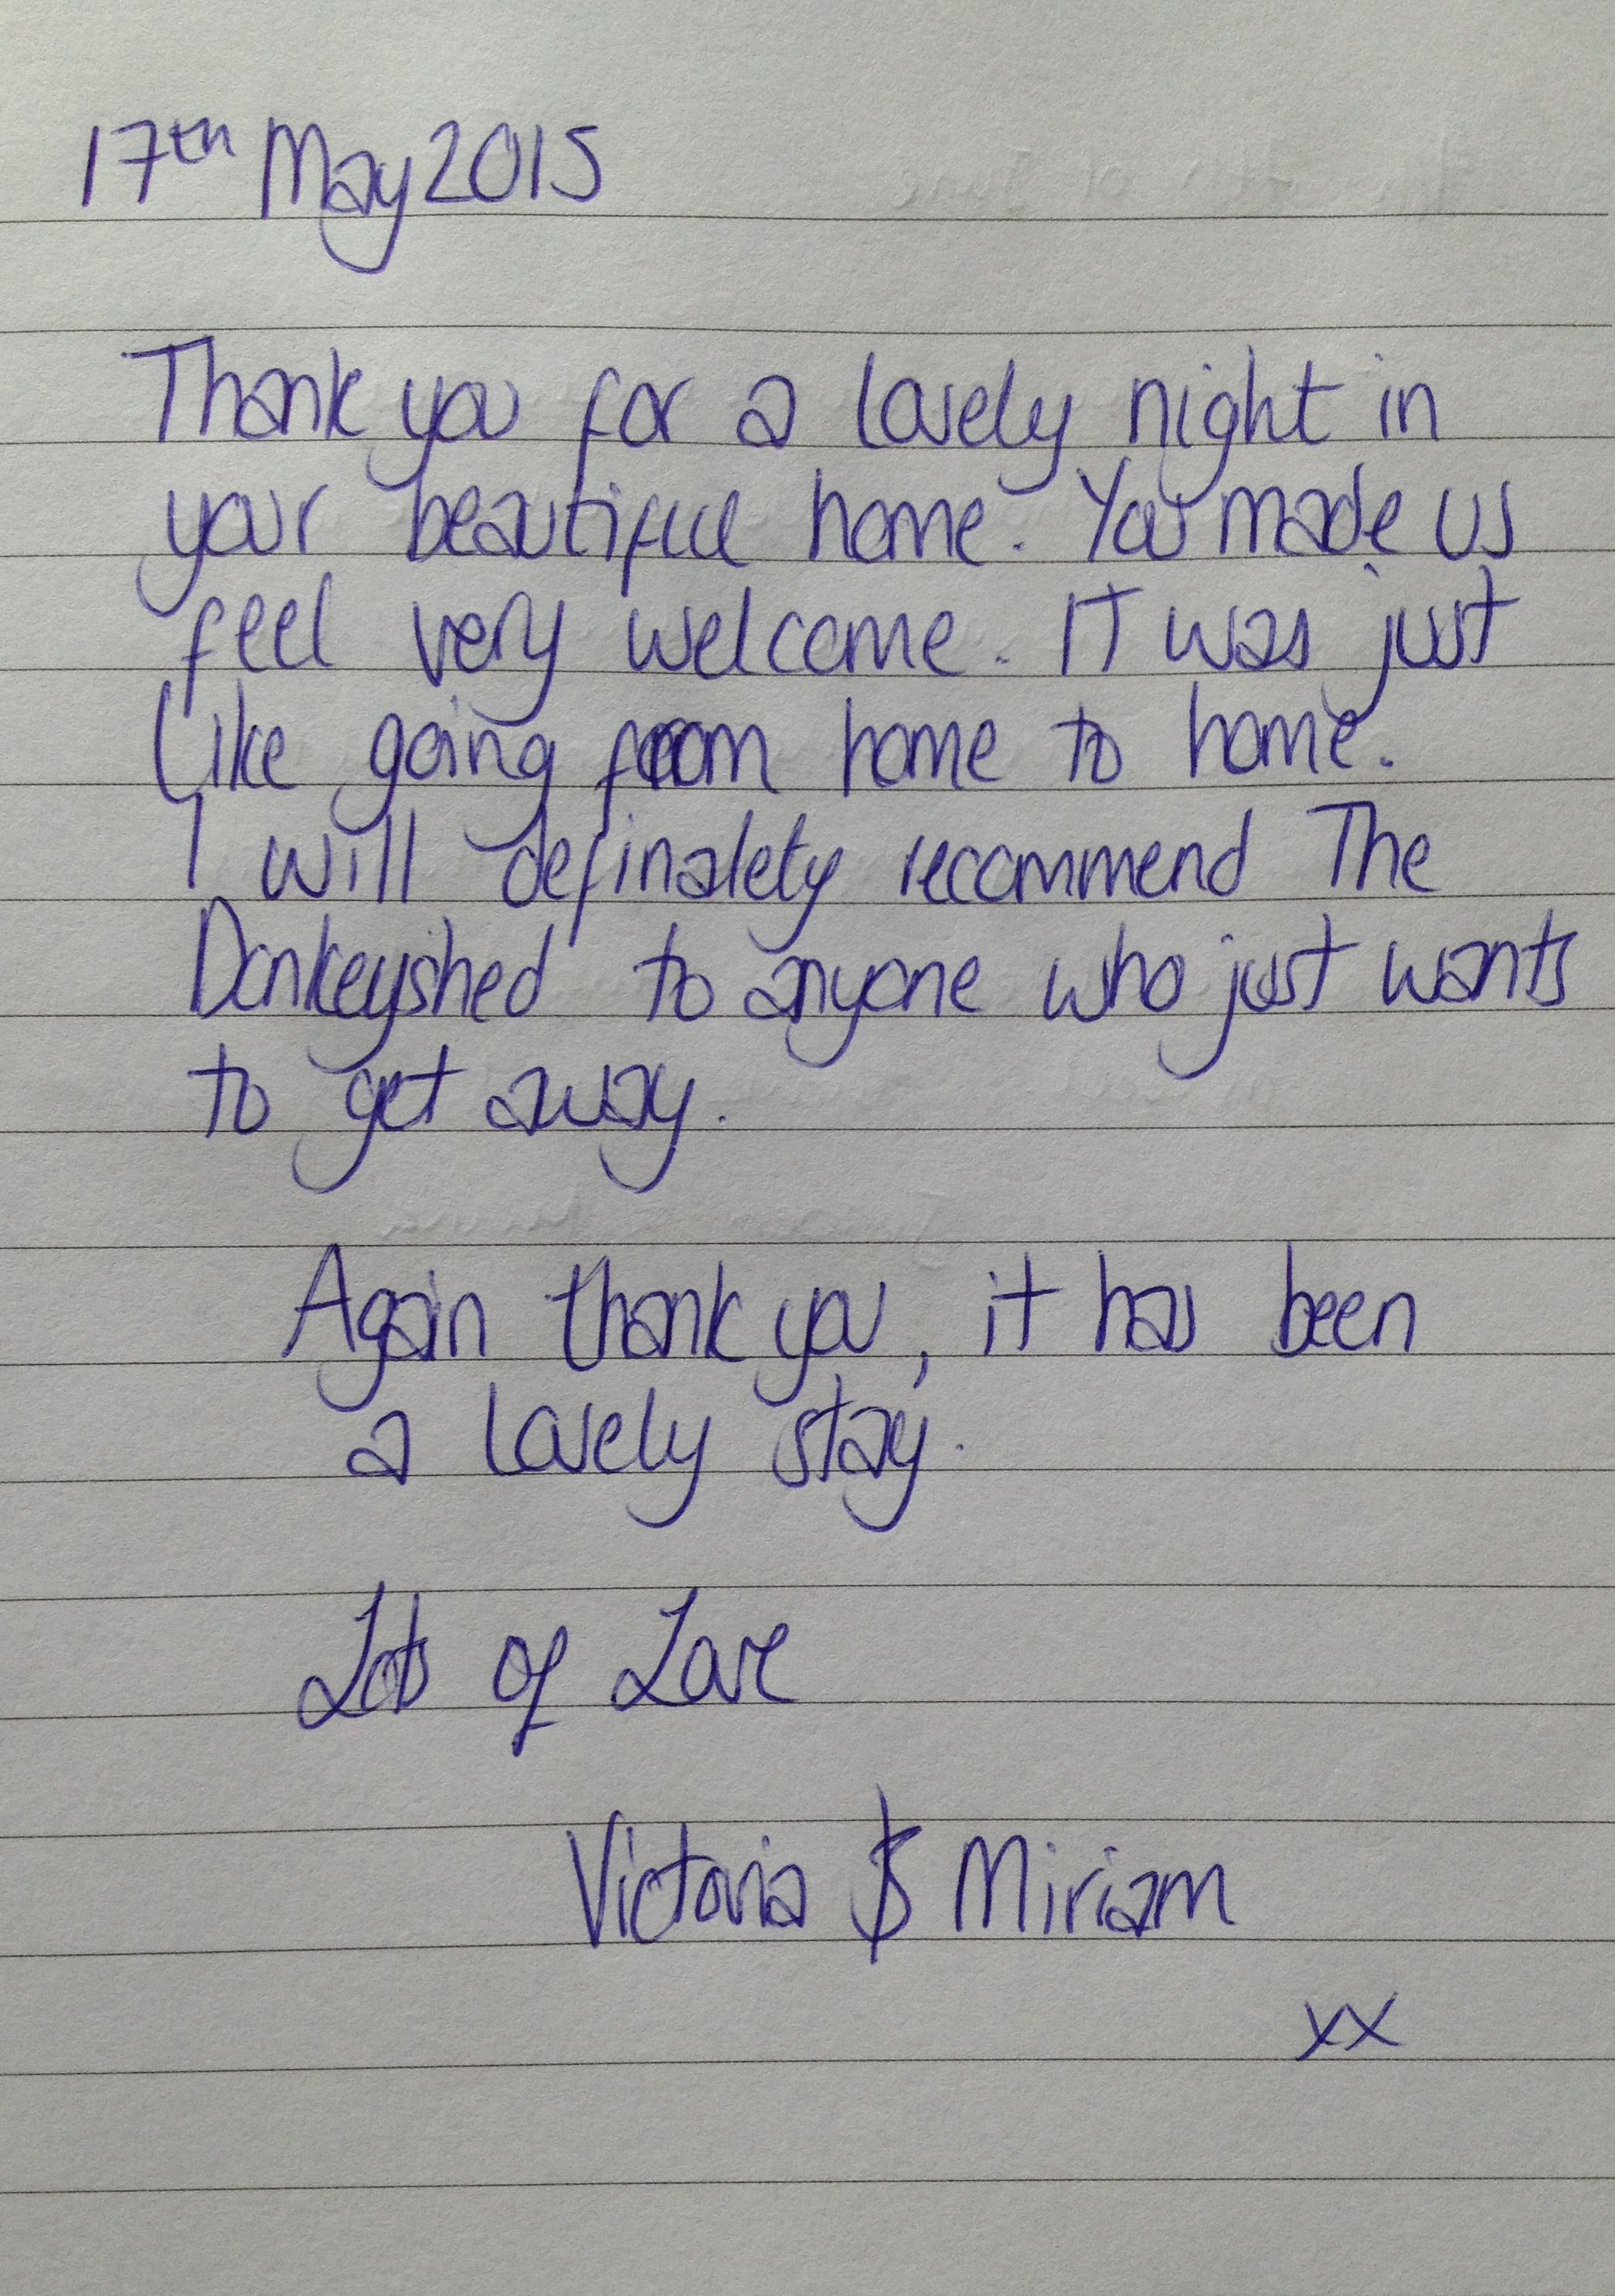 17th May 2015
Thank you for a lovely night in
your beautiful home. You made us
feel very welcome. IT was just
Like going from home to home.
I will definalety recommend The
Donkeyshed to anyone who just wants
to get away.
Again thank you, it has been
a lovely stay.
Lots of Love
Victoria & Miriam
xx